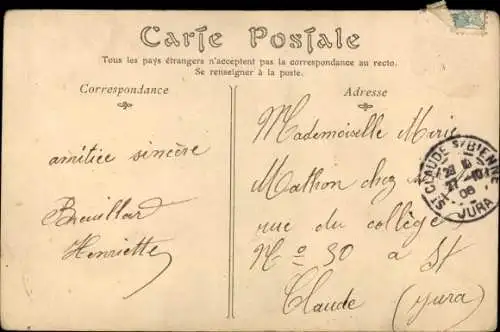 Carte Postale
Tous les pays étrangers n'acceptent pas la correspondance au recto.
Se renseigner à la poste.
Correspondance
Adresse
amitice sincère
Henriette
Mademoiselle Marie
Mathon chez
rue du collège
No 30 a St
Claude (Jura)
ST CLAUDE S/BIENNE
27 -10
08
JURA